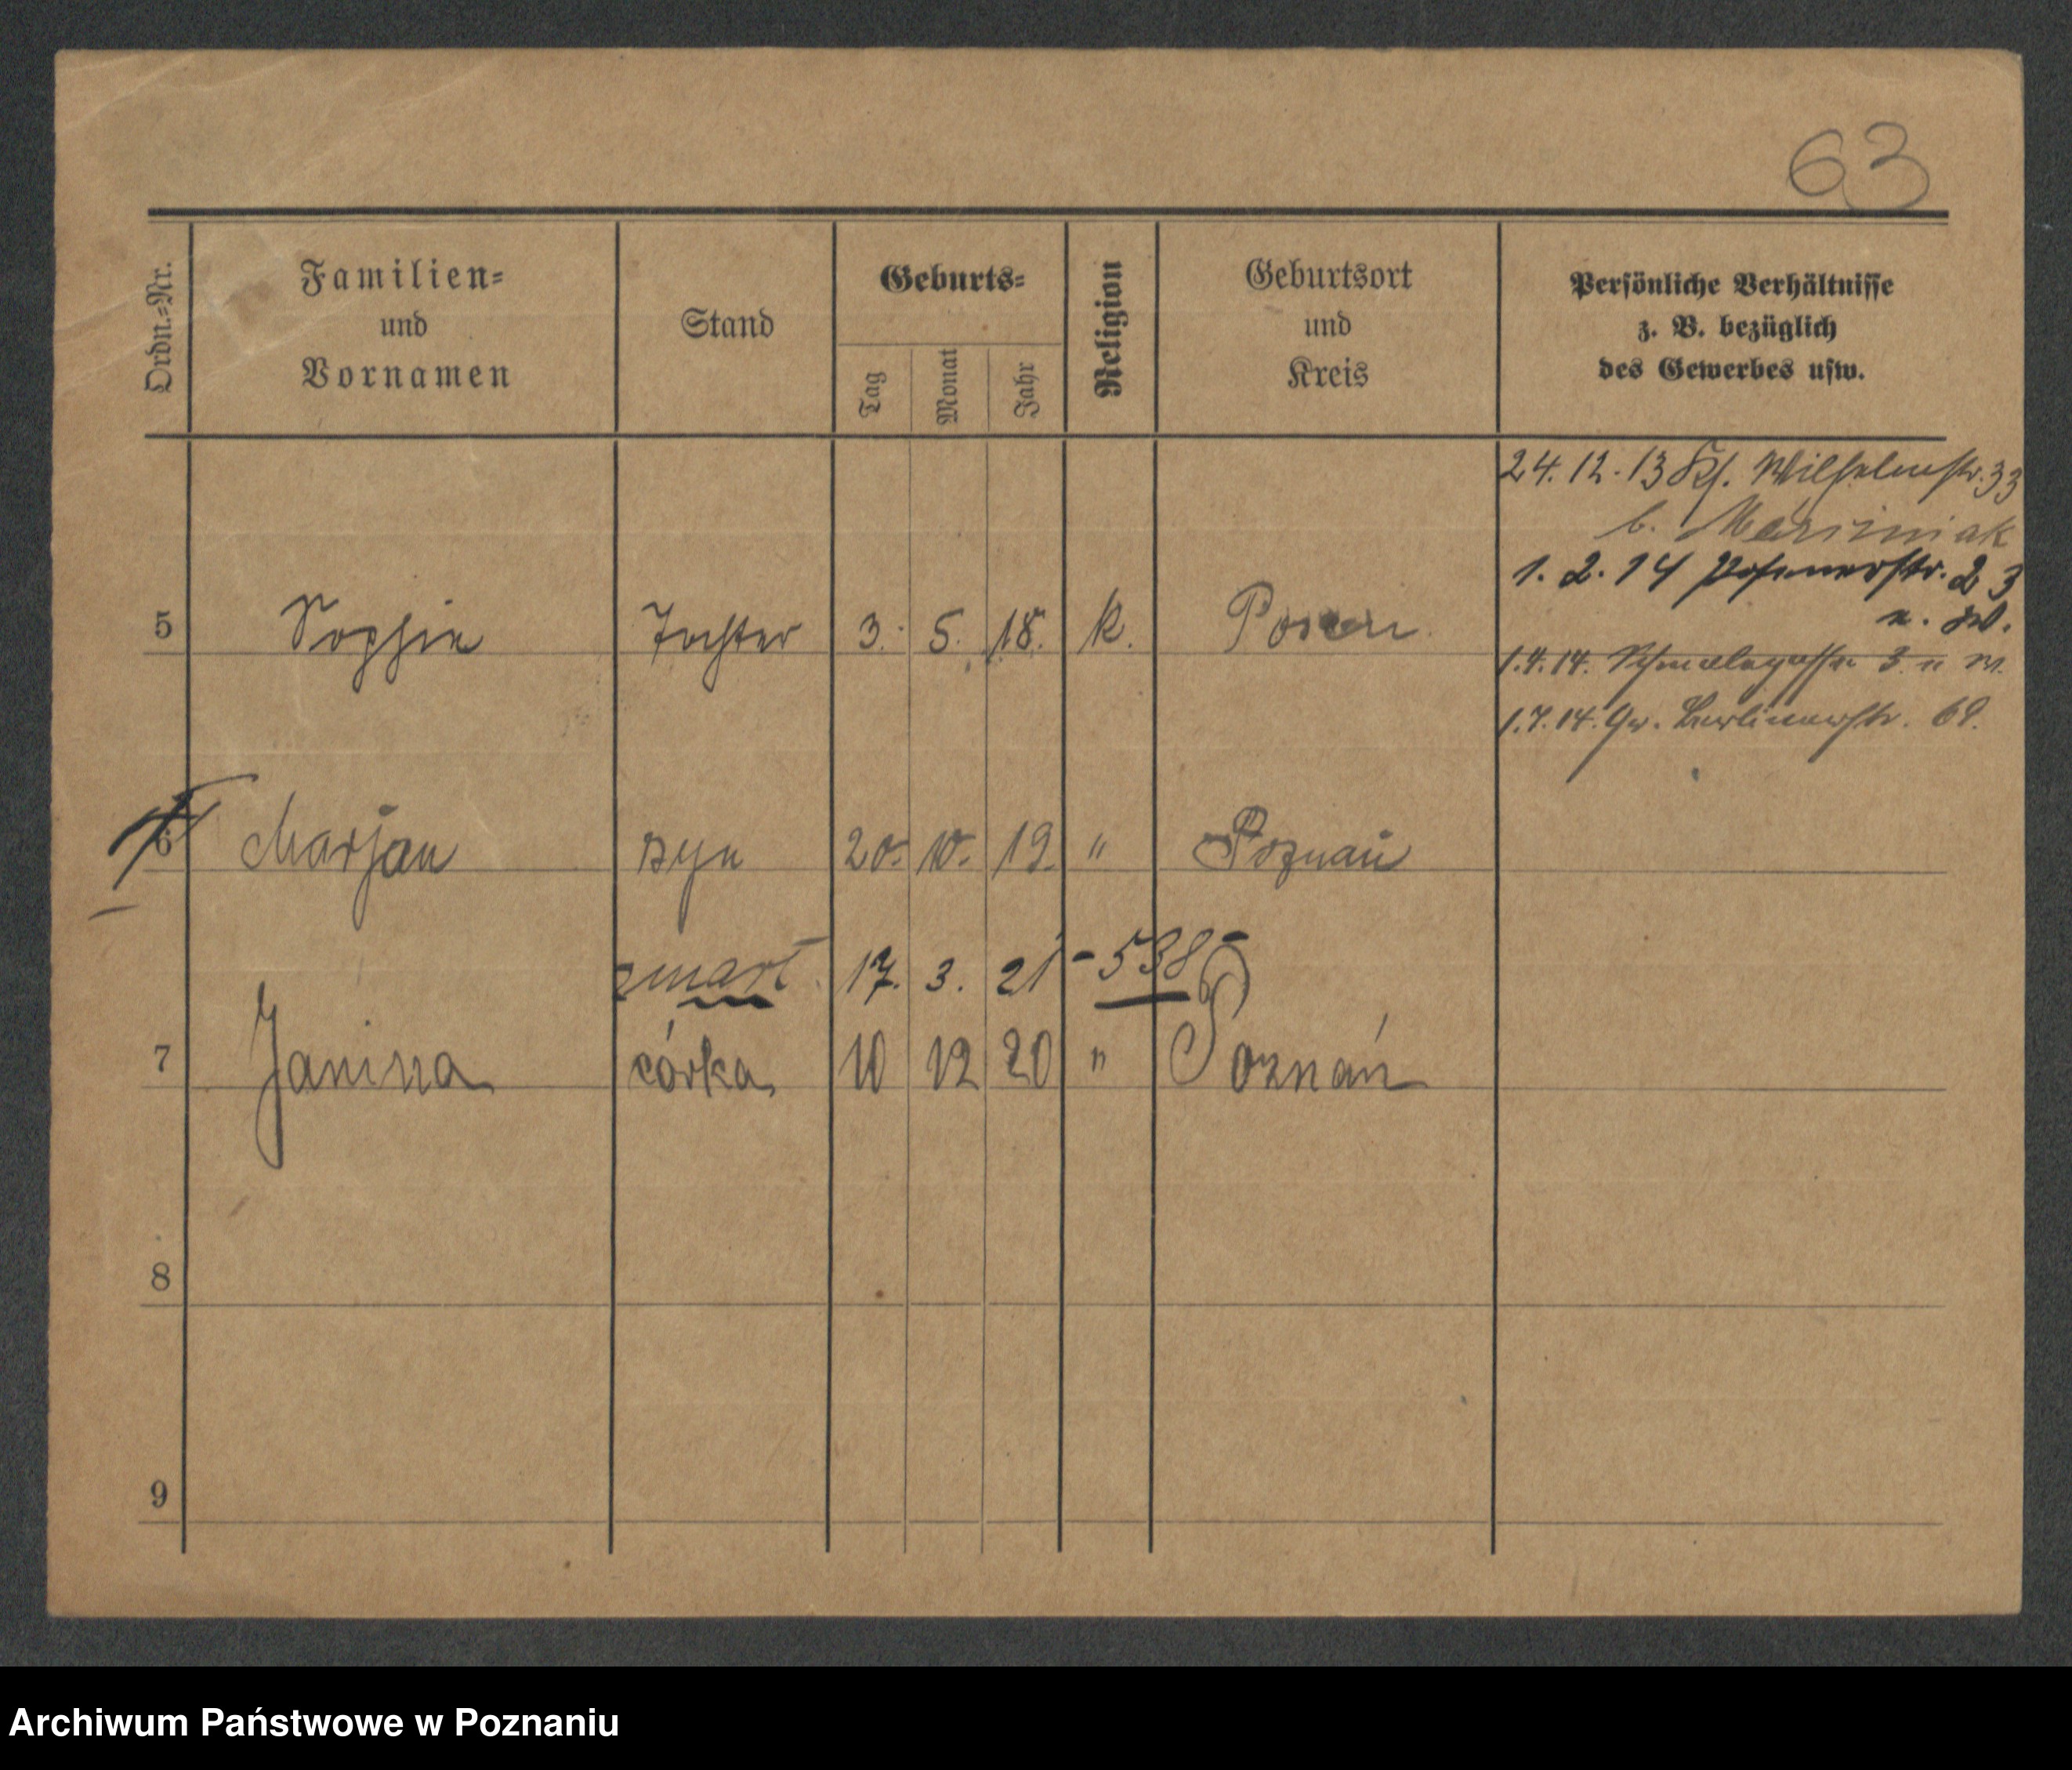 63
Ordn.-Nr.
Familien- und Vornamen
Stand
Geburts-
Tag
Monat
Jahr
Religion
Geburtsort und Kreis
Persönliche Verhältnisse z. B. bezüglich des Gewerbes usw.
24. 12. 13 Wilhelmstr. 33
b.
1. 2. 14 Posenerstr. 23
5 Sophie Tochter 3. 5. 18. k. Posen
1.4.14. 3
1.7.14. Gr. Berlinerstr. 69.
6 Marjan syn 20. 10. 19. " Poznań
zmarł 17. 3. 21 - 538 -
7 Janina córka 10 12 20 " Poznań
8
9
Archiwum Państwowe w Poznaniu